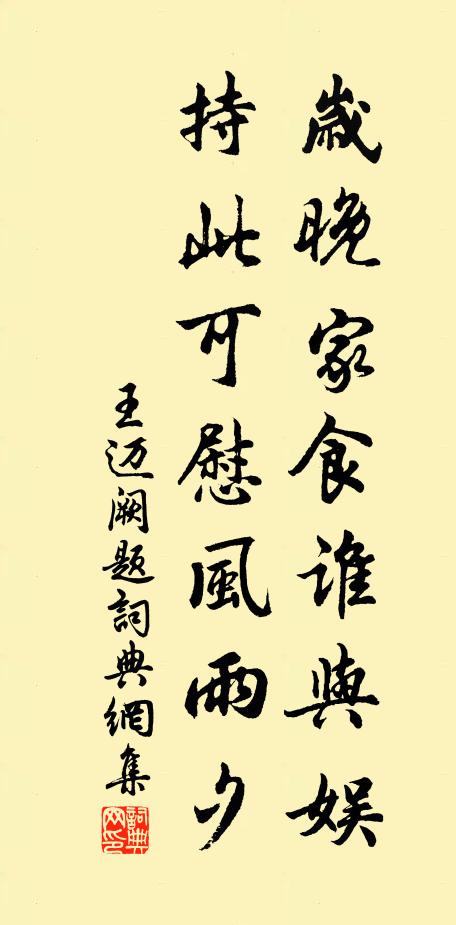 歲晚家食誰與娛
持此可慰風雨夕
王迈阙題詞典網集
詞典網印